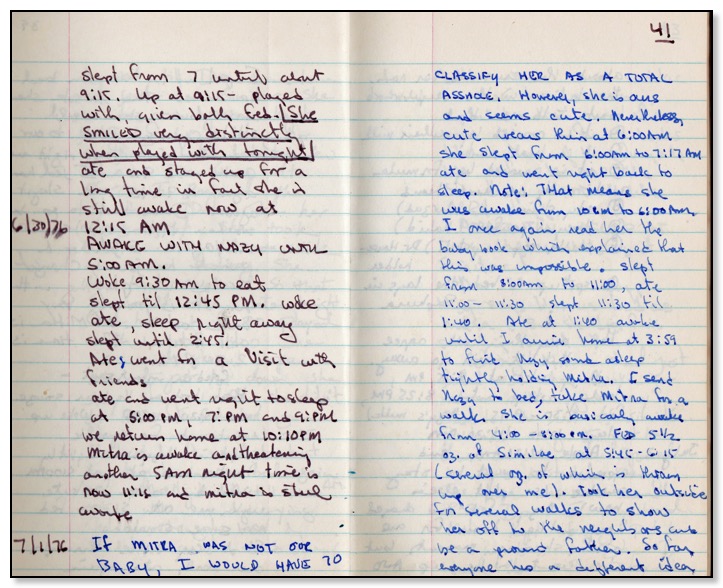 slept from 7 until about
9:15. Up at 9:15 - played
with, given bath fed. She
SMILED very distinctly
when played with tonight
ate and stayed up for a
long time in fact she is
still awake now at
6/30/76 12:15 AM
AWAKE WITH NAZY UNTIL
5:00 AM.
Woke 9:30 AM to eat
slept til 12:45 PM. woke
ate, sleep right away
slept until 2:45.
Ate, went for a visit with
friends
ate and went right to sleep
at 5:00 PM, 7:PM and 9:PM
we return home at 10:10 PM
Mitra is awake and threatening
another 5AM night time is
now 11:15 and mitra is still
awake
7/1/76 If MITRA WAS NOT OUR
BABY, I WOULD HAVE TO
41
CLASSIFY HER AS A TOTAL
ASSHOLE. However, she is ours
and seems cute. Nevertheless,
cute wears thin at 6:00AM
she slept from 6:00AM to 7:17AM
ate and went right back to
sleep. Note: THat means she
was awake from 10PM to 6:00AM.
I once again read her the
baby book which explained that
this was impossible. slept
from 8:00am to 11:00, ate
11:00 - 11:30 slept 11:30 til
1:40. Ate at 1:40 awake
until I arrive home at 3:59
to find Nazy sound asleep
tightly holding Mitra. I send
Nazy to bed, take Mitra for a
walk. She is basically awake
from 4:00 - 8:00 PM. FED 5 1/2
oz. of Similac at 5:45 - 6:15
(several oz. of which is thrown
up over me). Took her outside
for several walks to show
her off to the neighbors and
be a proud father. So far
everyone has a different idea